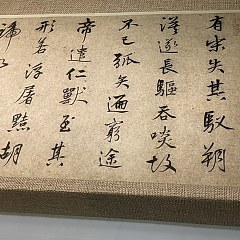 有宋失其馭朔
漠逐長驅吞啖故
不已孤矢迺窮途
帝遣仁獸至其
形若浮屠黠胡